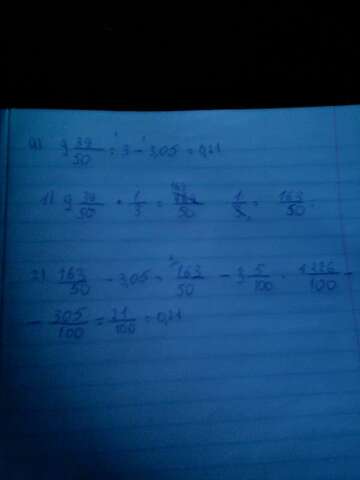 а) 9 39/50 : 3 - 3,05 = 0,21
1) 9 39/50 * 1/3 = 163/50 1/3 = 163/50.
2) 163/50 - 3,05 = 163/50 - 3 5/100 = 326/100 -
- 305/100 = 21/100 = 0,21